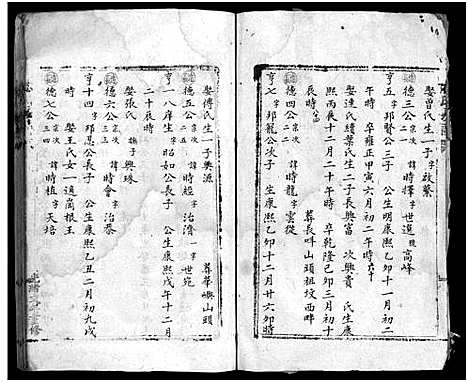 娶曾氏生一子啟蘩
德三公宗次 二一 諱時擇字世選號高峰
亨五字邦賢公三子 公生明康熙乙卯十一月初二
午時 卒雍正甲寅六月初二午時六十
娶連氏續葉氏生二子長興富 次興貴 氏生康
熙丙辰十二月二十午時 卒乾隆己卯三月初十
辰時 葬長呌山頭祖坟西畔
德四公宗次 二二 諱時龍字雲從
亨七字邦寵公次子 生康熙乙卯十二月廿六卯時
娶傅氏生一子興源 葬華嶼山頭
德五公宗次 諱時經字治濟一字世宛
亨一八庠生昭如公長子 公生康熙戊午十二月
二十辰時
娶張氏 撫子興珠
德六公宗次 三三 諱時會字治泰
亨十四字邦忠公長子 公生康熙乙丑二月初九戌
時 娶王氏女一適高根王
德七公宗次 三四 諱時植字天培